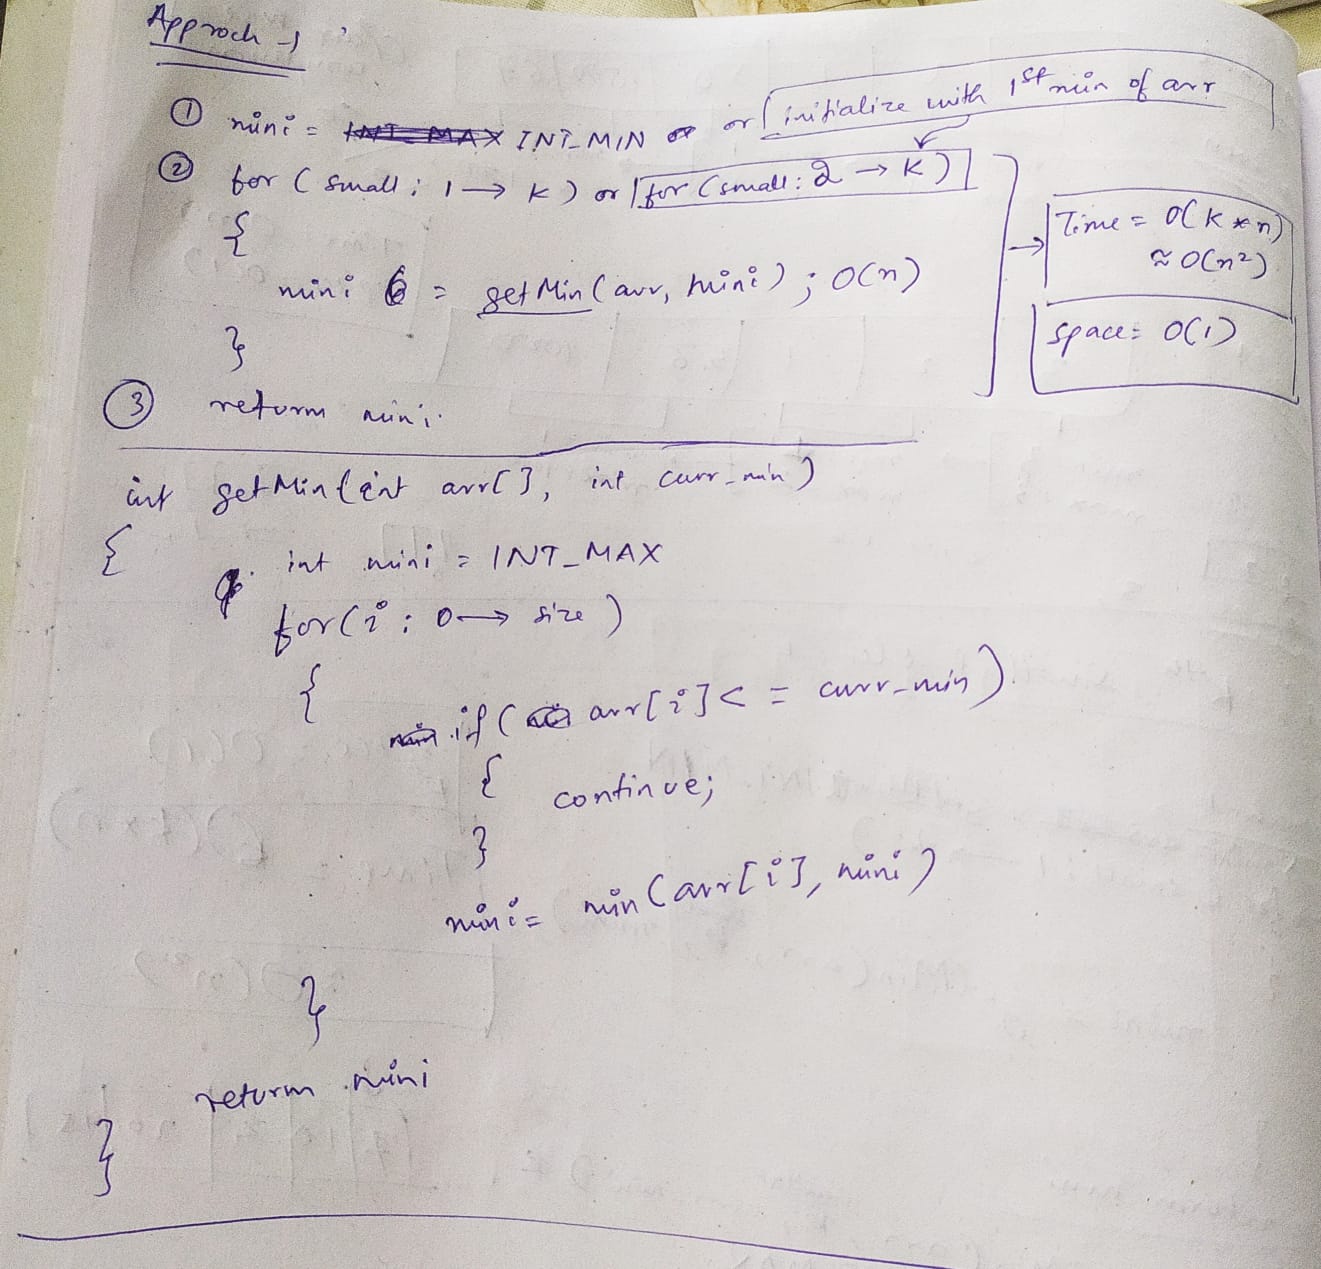 Approch -1
① mini = INT_MIN or [initialize with 1st min of arr
② for ( small : 1 → K ) or for (small : 2 → K )
{
mini = getMin(arr, mini) ; O(n)
}
③ return mini.
Time = O(K * n)
≈ O(n²)
Space = O(1)
int getMin(int arr[], int curr_min)
{
int mini = INT_MAX
for(i : 0 → size )
{
if ( arr[i] <= curr_min)
{ continue;
}
mini = min(arr[i], mini)
}
return mini
}